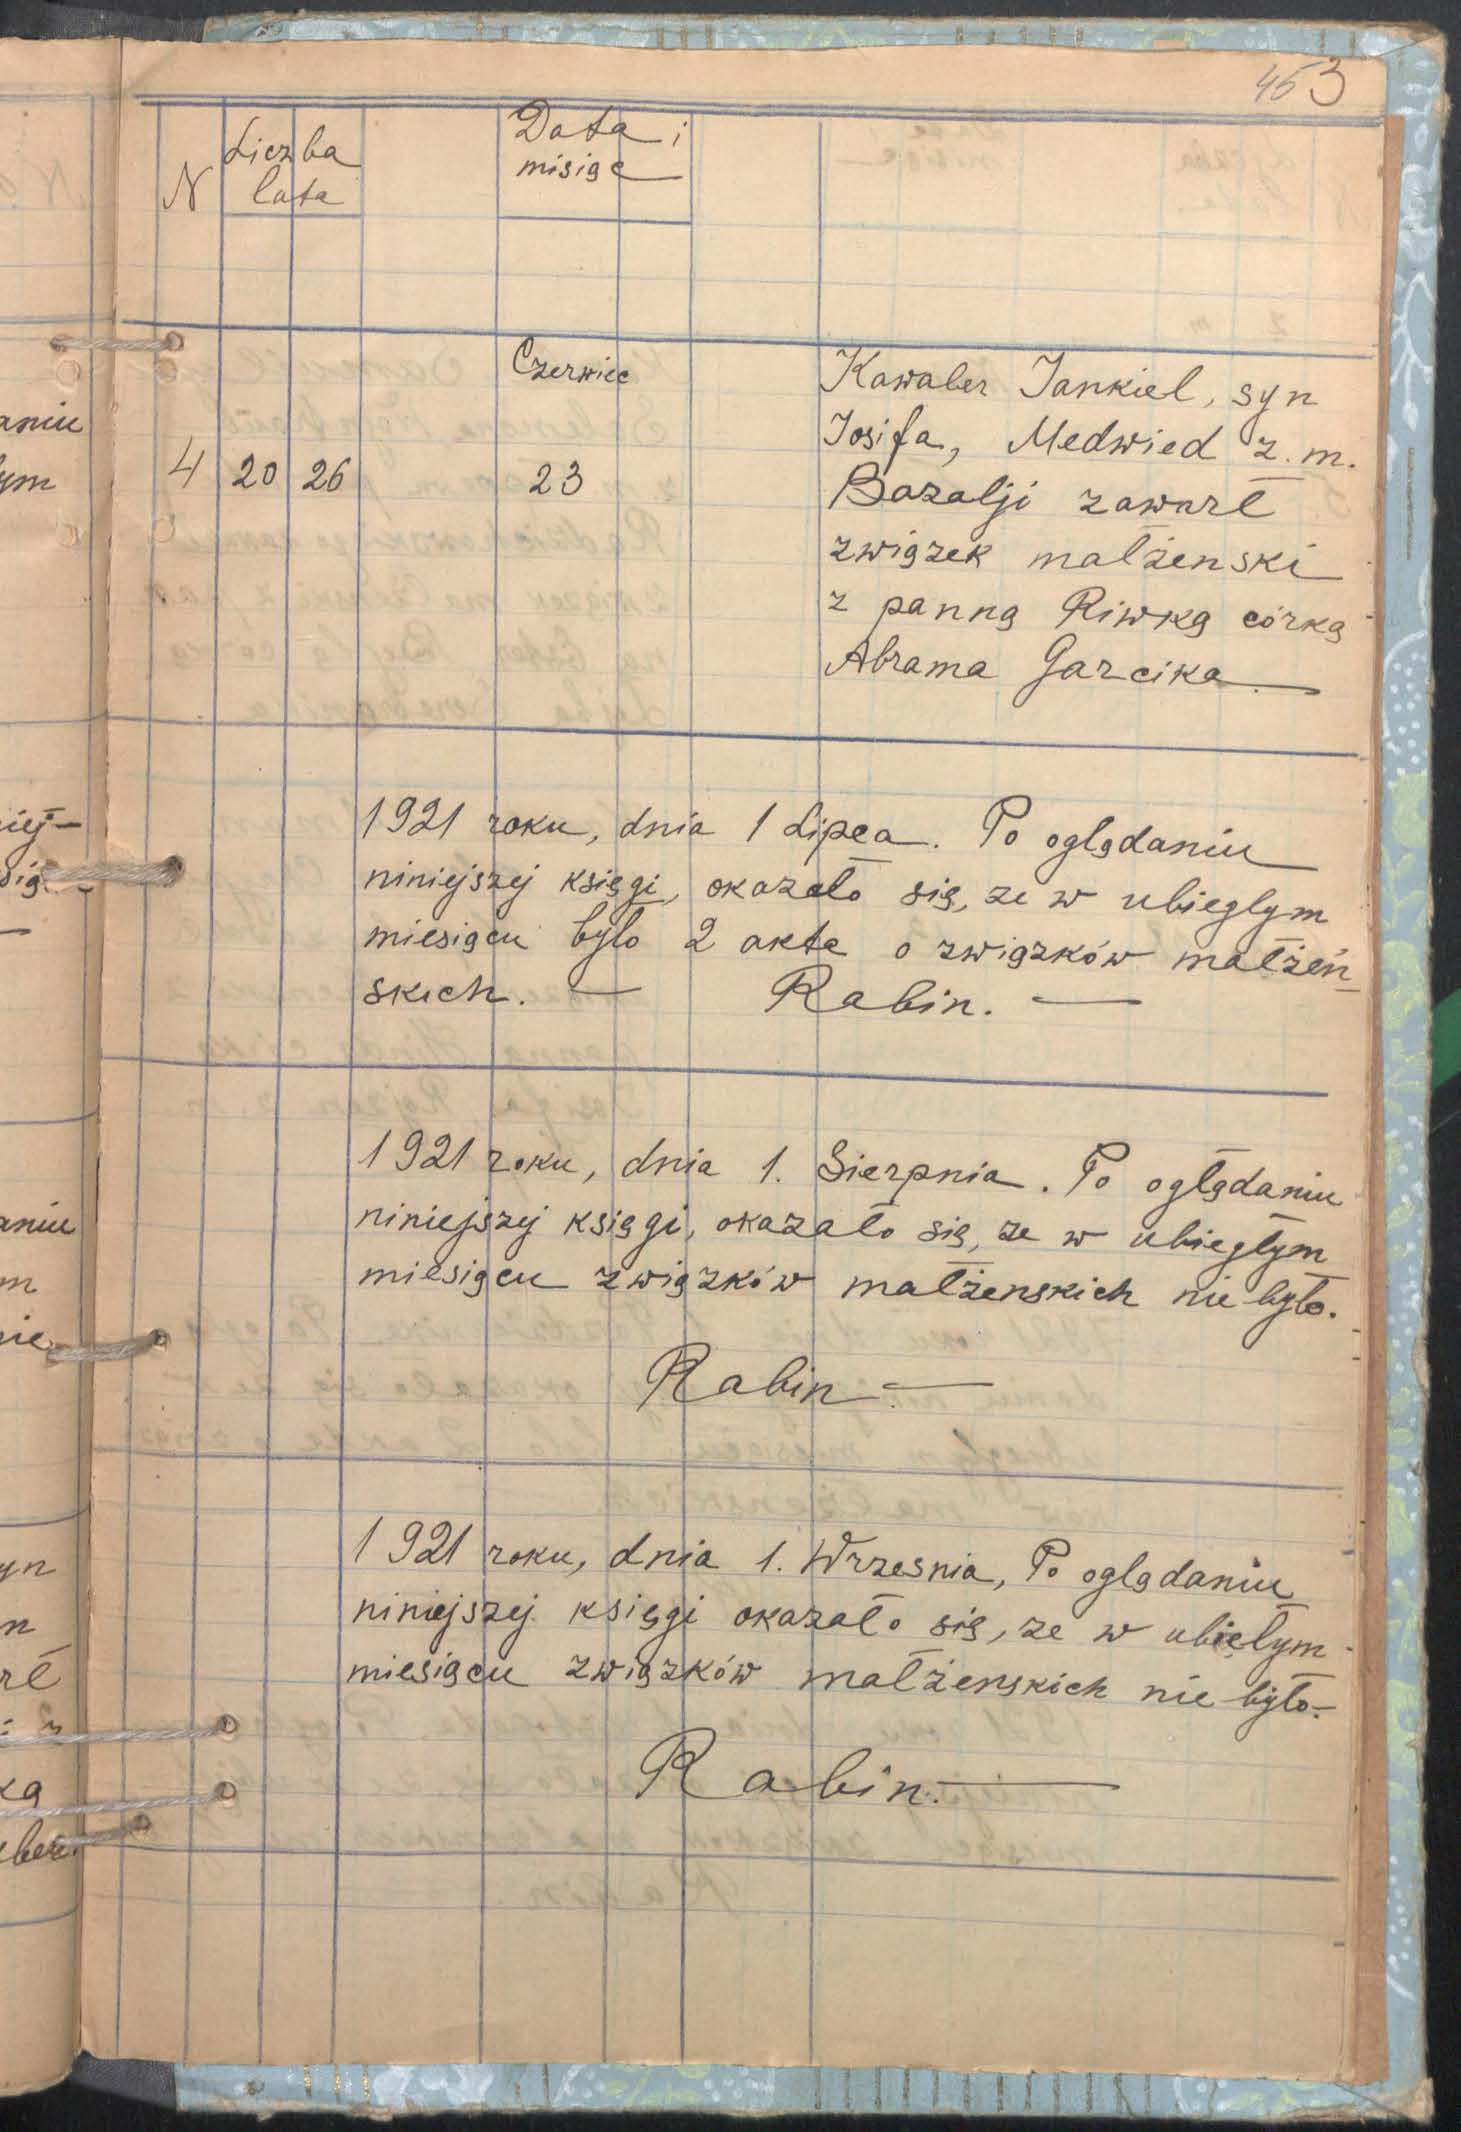 453
N
Liczba
lata
Data i
misiąc
Czerwiec
4 20 26 23
Kawaler Jankiel, syn
Josifa, Medwied z. m.
Bazalji zawarł
związek małżenski
z panną Riwką córką
Abrama Garcika
1921 roku, dnia 1 Lipca. Po oglądaniu
niniejszej księgi, okazało się, ze w ubieglym
miesiącu było 2 akta o związków małżeń-
skich. — Rabin. —
1921 roku, dnia 1. Sierpnia. Po oglądaniu
niniejszej księgi, okazało się, ze w ubiegłym
miesiącu związków małżenskich nie było.
Rabin —
1921 roku, dnia 1. Wrzesnia, Po oglądaniu
niniejszej księgi okazało się, ze w ubiełym
miesiącu związków małżenskich nie było.
Rabin. —